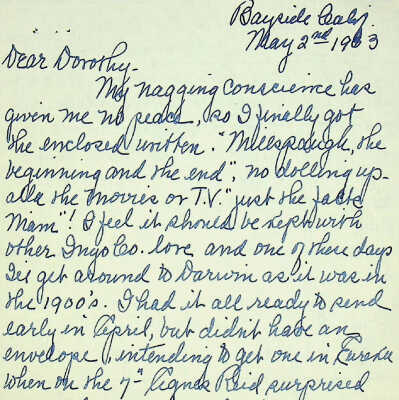 Bayside Calif.
May 2nd 1963
"Dear Dorothy-
My nagging conscience has
given me no peace, so I finally got
the enclosed written. "Millspaugh, the
beginning and the end", no dolling up-
ala the movies or T.V. "just the facts
Mam"! I feel it should be kept with
other Inyo Co. love and one of these days
I'll get around to Darwin as it was in
the 1900's. I had it all ready to send
early in April, but didn't have an
envelope, intending to get one in Eureka
when on the 7th Agnes Reid surprised